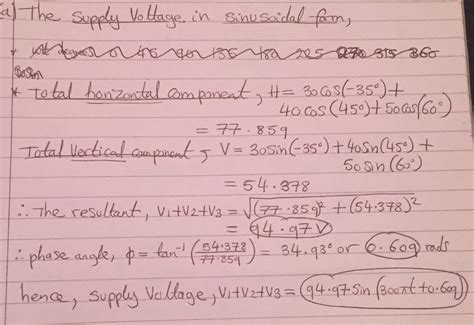 (a) The supply Voltage in sinusoidal-form,
* 0 45 90 135 180 225 270 315 360
* Total horizontal component, H = 30cos(-35°)+
40cos(45°)+50cos(60°)
= 77.859
Total Vertical component, V = 30sin(-35°)+40sin(45°)+
50sin(60°)
= 54.378
∴ The resultant, V1+V2+V3 = √(77.859)² + (54.378)²
= 94.97V
∴ phase angle, φ = tan⁻¹(54.378/77.859) = 34.93° or 0.609 rads
hence, supply Voltage, V1+V2+V3 = 94.97Sin(300πt+0.609)